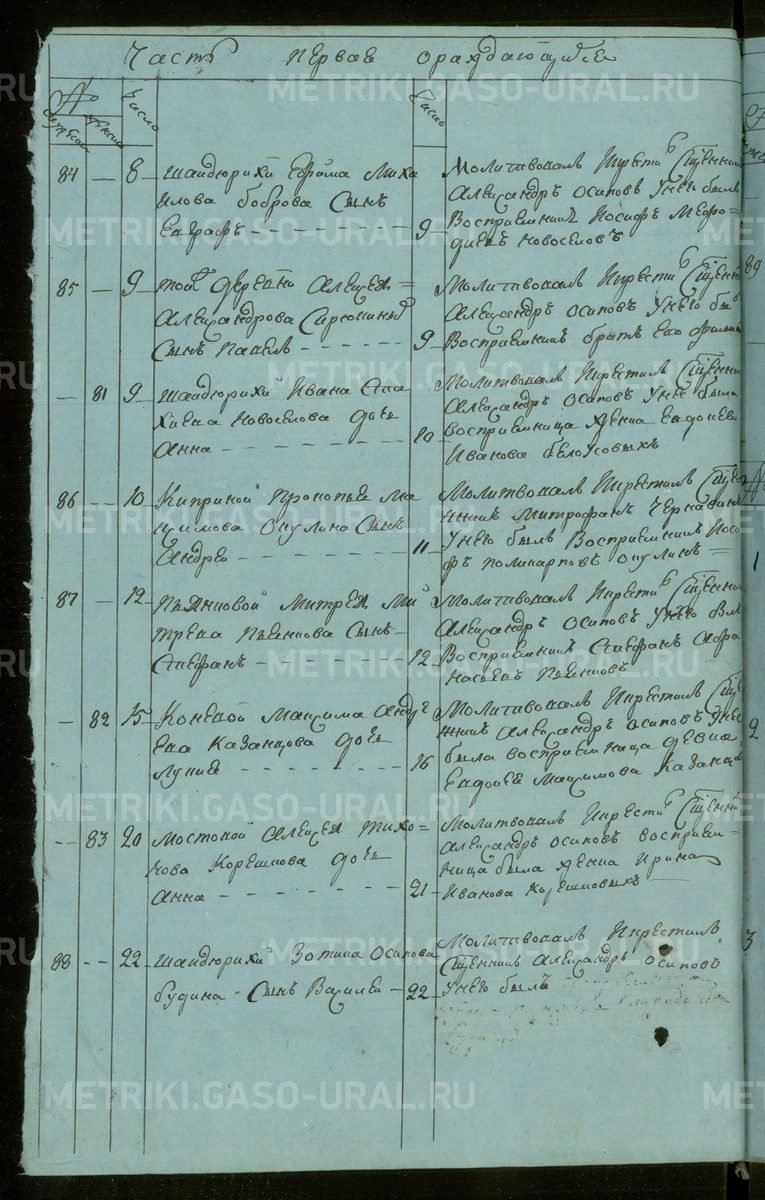 Часть первая ораждающихся
№
Число
Число
мужеска
женска
84 — 8 шандюрихи Ефима Миха
илова боброва Сынъ
Евграфъ
Молитвовалъ икрестилъ Сщенникъ
Александръ осиповъ унего былъ
9 Восприемникъ Иосифъ Мефо-
диевъ Новоселовъ
85 — 9 той деревни Алексея
Александрова Сынъ Павелъ
Молитвовалъ икрестилъ Сщенникъ
Александръ осиповъ унего бы
9 Восприемникъ братъ его
— 81 9 шандюрихи Ивана
Новоселова дочь
Анна
Молитвовалъ икрестилъ Сщенник
Александръ осиповъ унее была
10 восприемница женка Евдокея
Иванова белоусовыхъ
86 — 10 Киприной Прокопья Ма
ксимова Окулина Сынъ
Андрей
Молитвовалъ икрестилъ Сще
нникъ Митрофанъ Чернавинъ
11 унего былъ Восприемникъ Иоси
фъ поликарповъ окулинъ
87 — 12 Пьянковой Митрея Ми
трева Пьянкова Сынъ
Стефанъ
Молитвовалъ икрестилъ Сщенникъ
Александръ осиповъ унего былъ
12 Восприемникъ Стефанъ Афа
насьевъ Пьянковъ
— 82 15 Коневой Максима Андре
ева Казанцова дочь
Лукия
Молитвовалъ икрестилъ Сще
нникъ Александръ осиповъ унее
16 была восприемница девка
Евдокея Максимова Казанц
— 83 20 мостовой Алексея Тихо
нова Корешкова дочь
Анна
Молитвовалъ икрестилъ Сщенникъ
Александръ осиповъ восприем-
ница была женка Ирина
21 Иванова Корешковыхъ
88 — 22 шандюрихи Зотика Осипова
будина Сынъ Василеи
Молитвовалъ икрестилъ
Сщенникъ Александръ осиповъ
22 унего былъ
89
1
2
3
METRIKI.GASO-URAL.RU